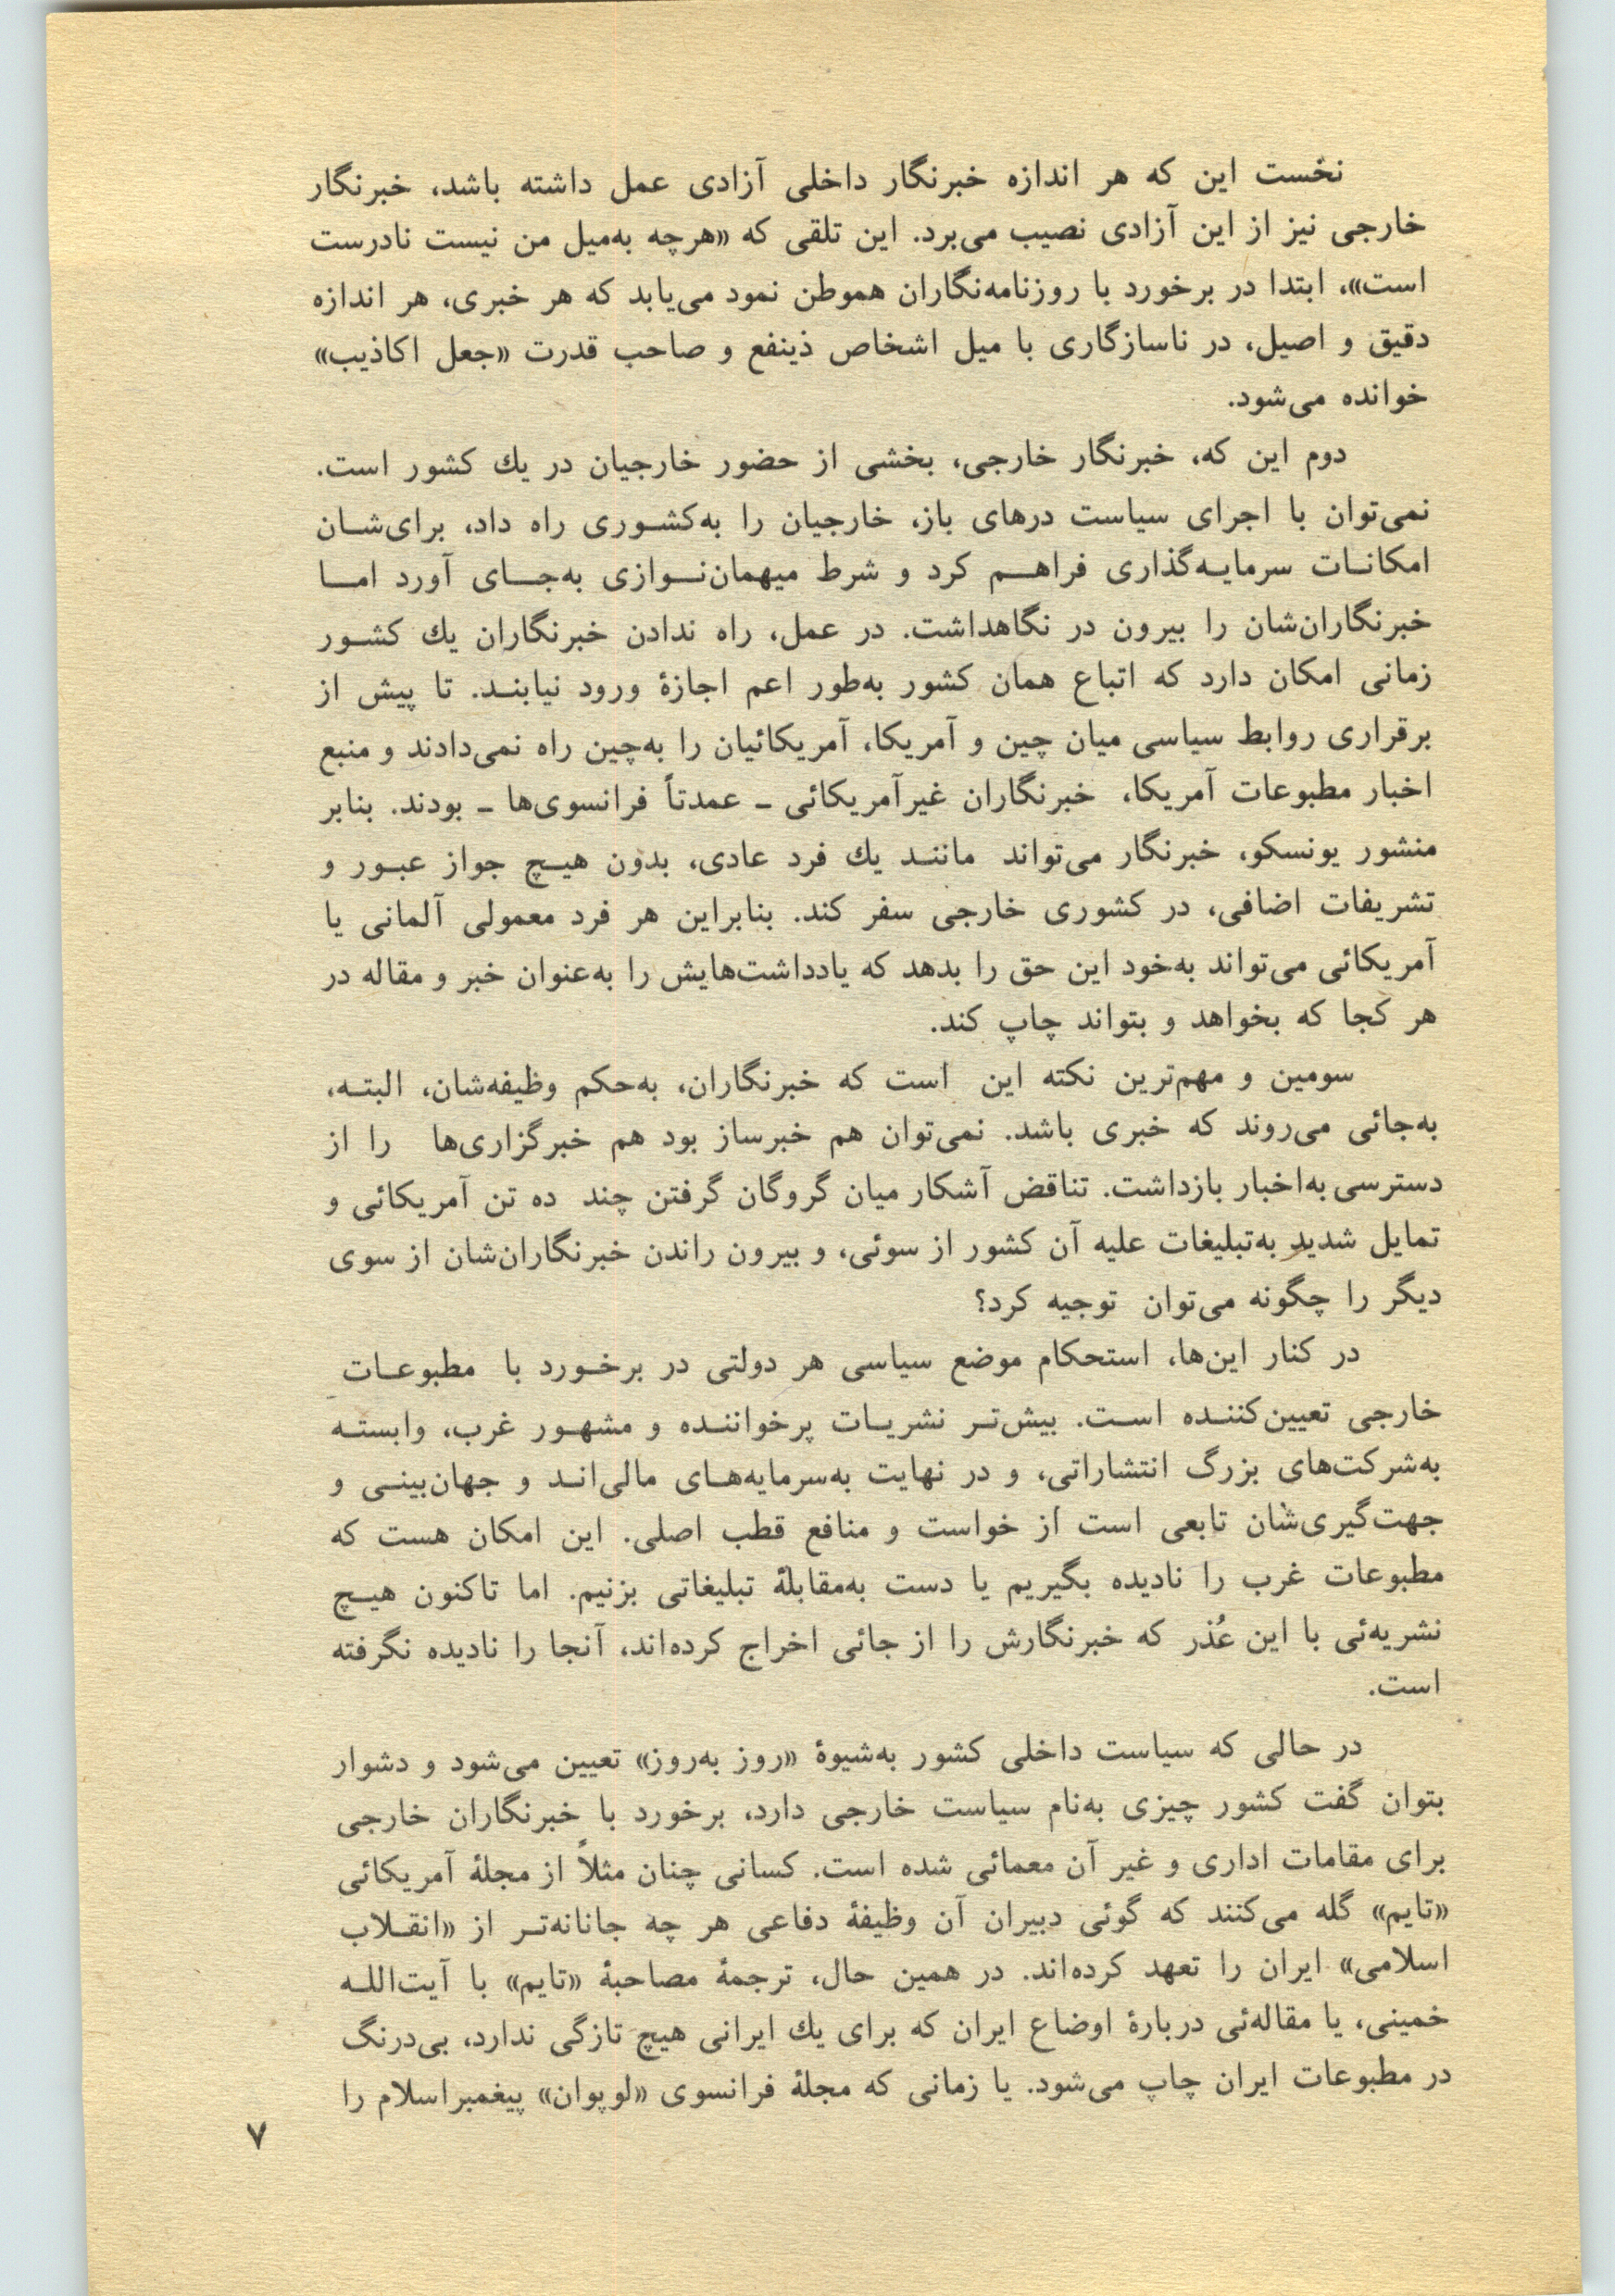 نخست این که هر اندازه خبرنگار داخلی آزادی عمل داشته باشد، خبرنگار
خارجی نیز از این آزادی نصیب می‌برد. این تلقی که «هرچه به‌میل من نیست نادرست
است»، ابتدا در برخورد با روزنامه‌نگاران هموطن نمود می‌یابد که هر خبری، هر اندازه
دقیق و اصیل، در ناسازگاری با میل اشخاص ذینفع و صاحب قدرت «جعل اکاذیب»
خوانده می‌شود.
دوم این که، خبرنگار خارجی، بخشی از حضور خارجیان در یك کشور است.
نمی‌توان با اجرای سیاست درهای باز، خارجیان را به‌کشوری راه داد، برای‌شان
امکانات سرمایه‌گذاری فراهم کرد و شرط میهمان‌نوازی به‌جای آورد اما
خبرنگاران‌شان را بیرون در نگاهداشت. در عمل، راه ندادن خبرنگاران یك کشور
زمانی امکان دارد که اتباع همان کشور به‌طور اعم اجازهٔ ورود نیابند. تا پیش از
برقراری روابط سیاسی میان چین و آمریکا، آمریکائیان را به‌چین راه نمی‌دادند و منبع
اخبار مطبوعات آمریکا، خبرنگاران غیرآمریکائی ـ عمدتاً فرانسوی‌ها ـ بودند. بنابر
منشور یونسکو، خبرنگار می‌تواند مانند یك فرد عادی، بدون هیچ جواز عبور و
تشریفات اضافی، در کشوری خارجی سفر کند. بنابراین هر فرد معمولی آلمانی یا
آمریکائی می‌تواند به‌خود این حق را بدهد که یادداشت‌هایش را به‌عنوان خبر و مقاله در
هر کجا که بخواهد و بتواند چاپ کند.
سومین و مهم‌ترین نکته این است که خبرنگاران، به‌حکم وظیفه‌شان، البته،
به‌جائی می‌روند که خبری باشد. نمی‌توان هم خبرساز بود هم خبرگزاری‌ها را از
دسترسی به‌اخبار بازداشت. تناقض آشکار میان گروگان گرفتن چند ده تن آمریکائی و
تمایل شدید به‌تبلیغات علیه آن کشور از سوئی، و بیرون راندن خبرنگاران‌شان از سوی
دیگر را چگونه می‌توان توجیه کرد؟
در کنار این‌ها، استحکام موضع سیاسی هر دولتی در برخورد با مطبوعات
خارجی تعیین‌کننده است. بیش‌تر نشریات پرخواننده و مشهور غرب، وابسته
به‌شرکت‌های بزرگ انتشاراتی، و در نهایت به‌سرمایه‌های مالی‌اند و جهان‌بینی و
جهت‌گیری‌شان تابعی است از خواست و منافع قطب اصلی. این امکان هست که
مطبوعات غرب را نادیده بگیریم یا دست به‌مقابلهٔ تبلیغاتی بزنیم. اما تاکنون هیچ
نشریه‌ئی با این عُذر که خبرنگارش را از جائی اخراج کرده‌اند، آنجا را نادیده نگرفته
است.
در حالی که سیاست داخلی کشور به‌شیوهٔ «روز به‌روز» تعیین می‌شود و دشوار
بتوان گفت کشور چیزی به‌نام سیاست خارجی دارد، برخورد با خبرنگاران خارجی
برای مقامات اداری و غیر آن معمائی شده است. کسانی چنان مثلاً از مجلهٔ آمریکائی
«تایم» گله می‌کنند که گوئی دبیران آن وظیفهٔ دفاعی هر چه جانانه‌تر از «انقلاب
اسلامی» ایران را تعهد کرده‌اند. در همین حال، ترجمهٔ مصاحبهٔ «تایم» با آیت‌الله
خمینی، یا مقاله‌ئی دربارهٔ اوضاع ایران که برای یك ایرانی هیچ تازگی ندارد، بی‌درنگ
در مطبوعات ایران چاپ می‌شود. یا زمانی که مجلهٔ فرانسوی «لوپوان» پیغمبراسلام را
۷